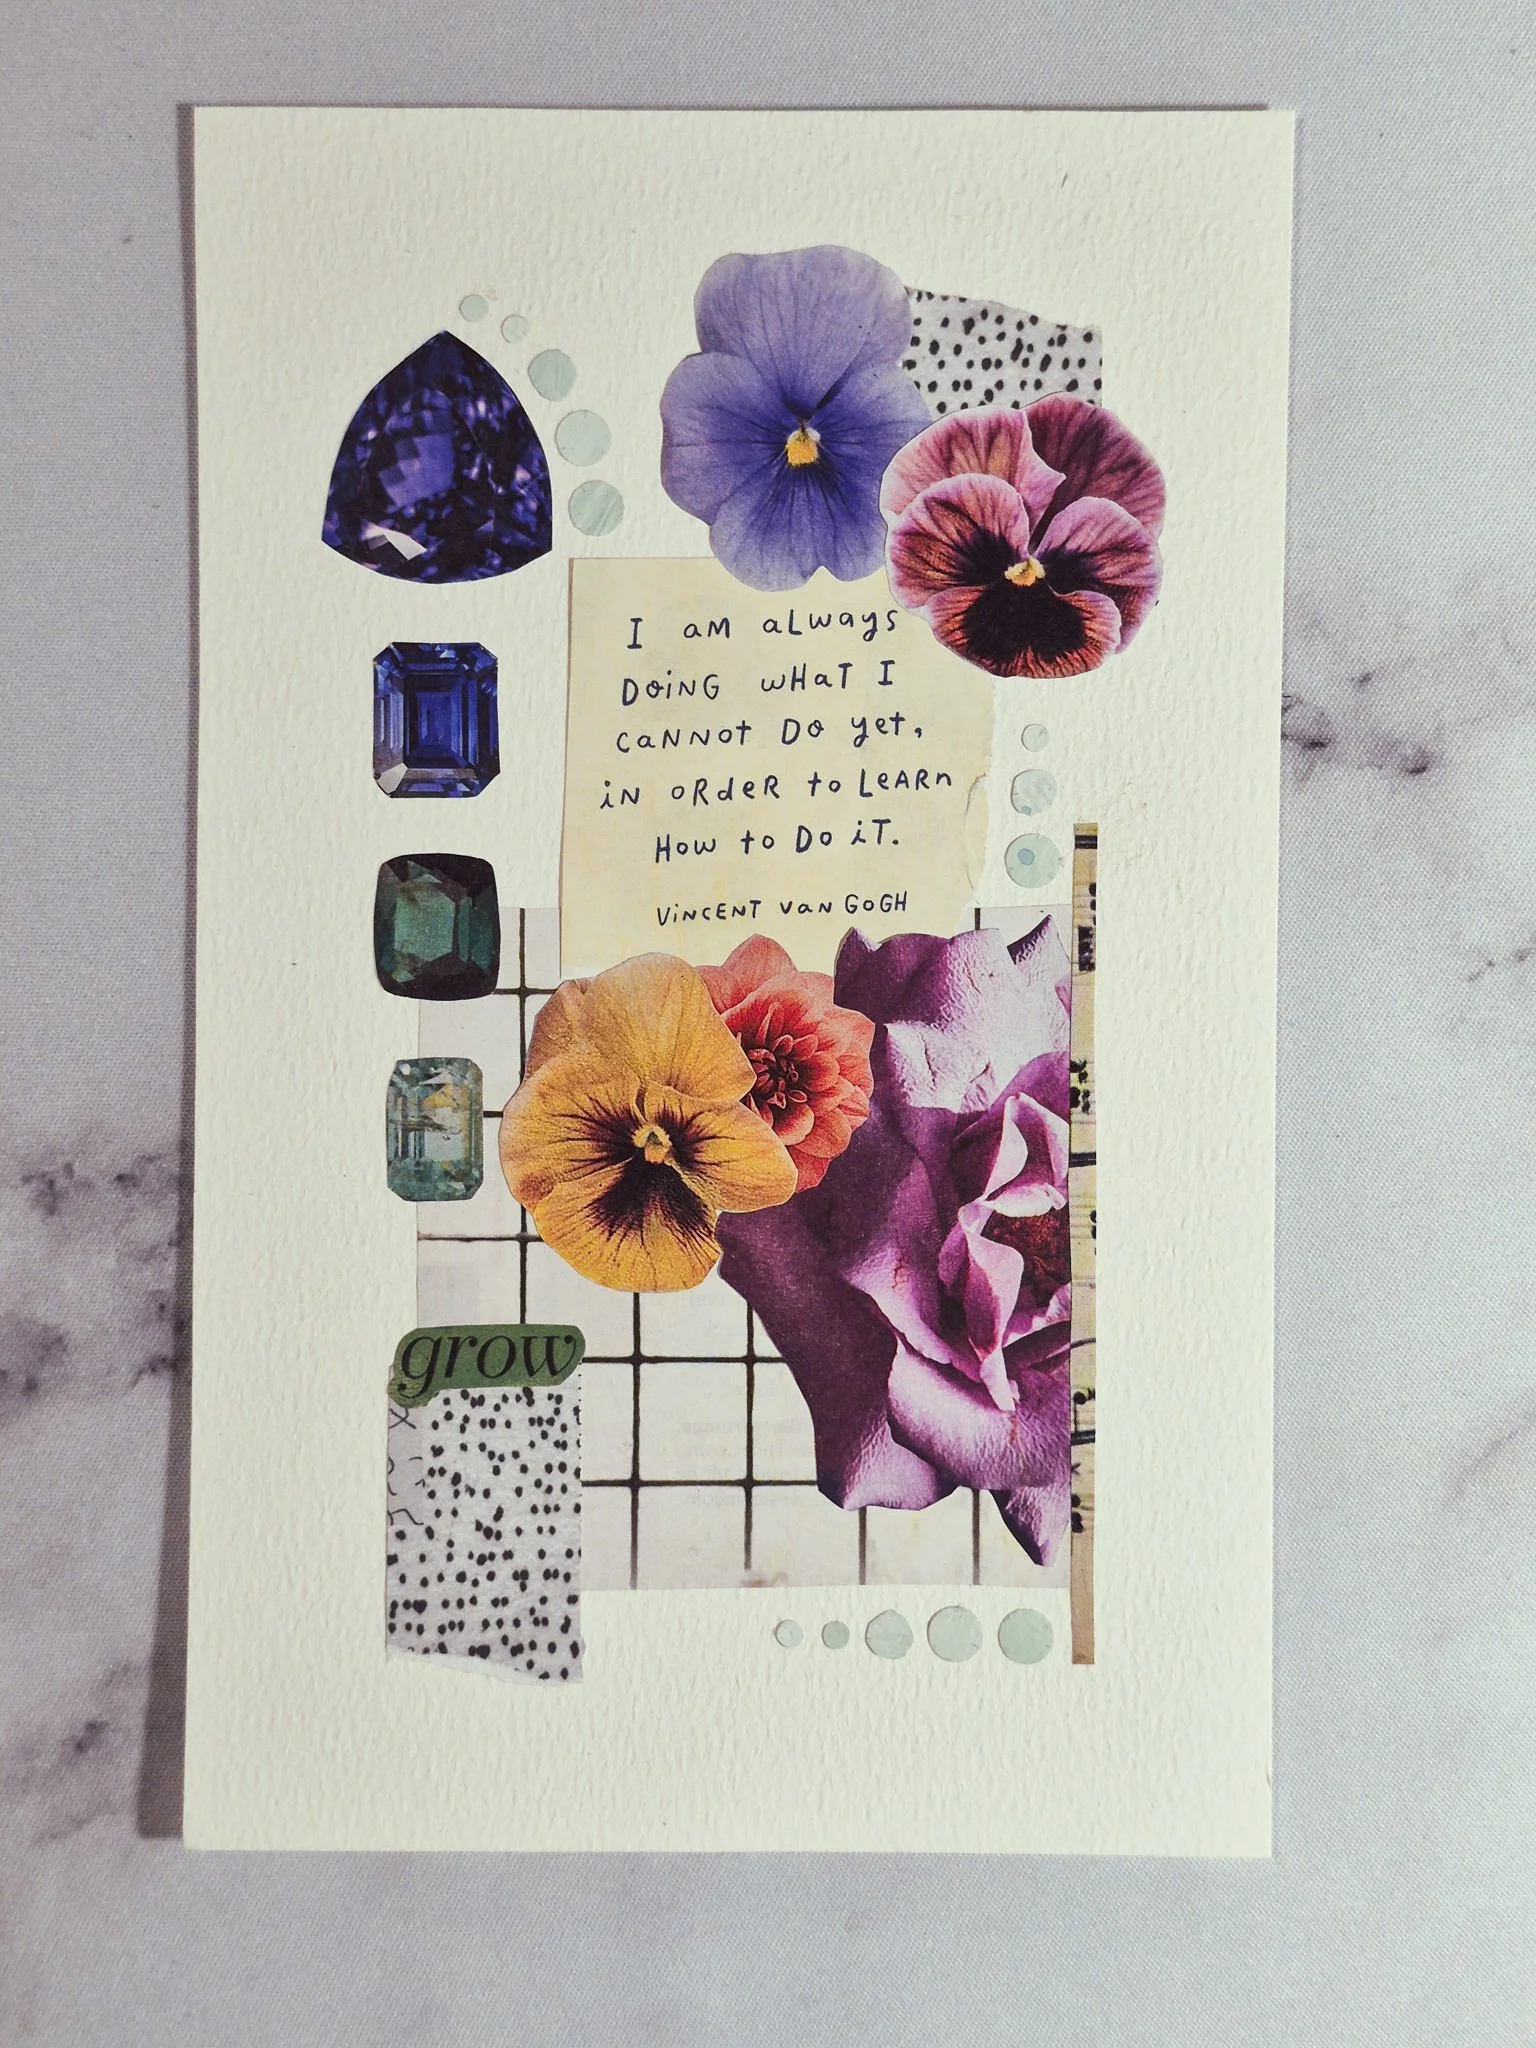 I am always
doing what I
cannot do yet,
in order to learn
how to do it.
Vincent van Gogh
grow